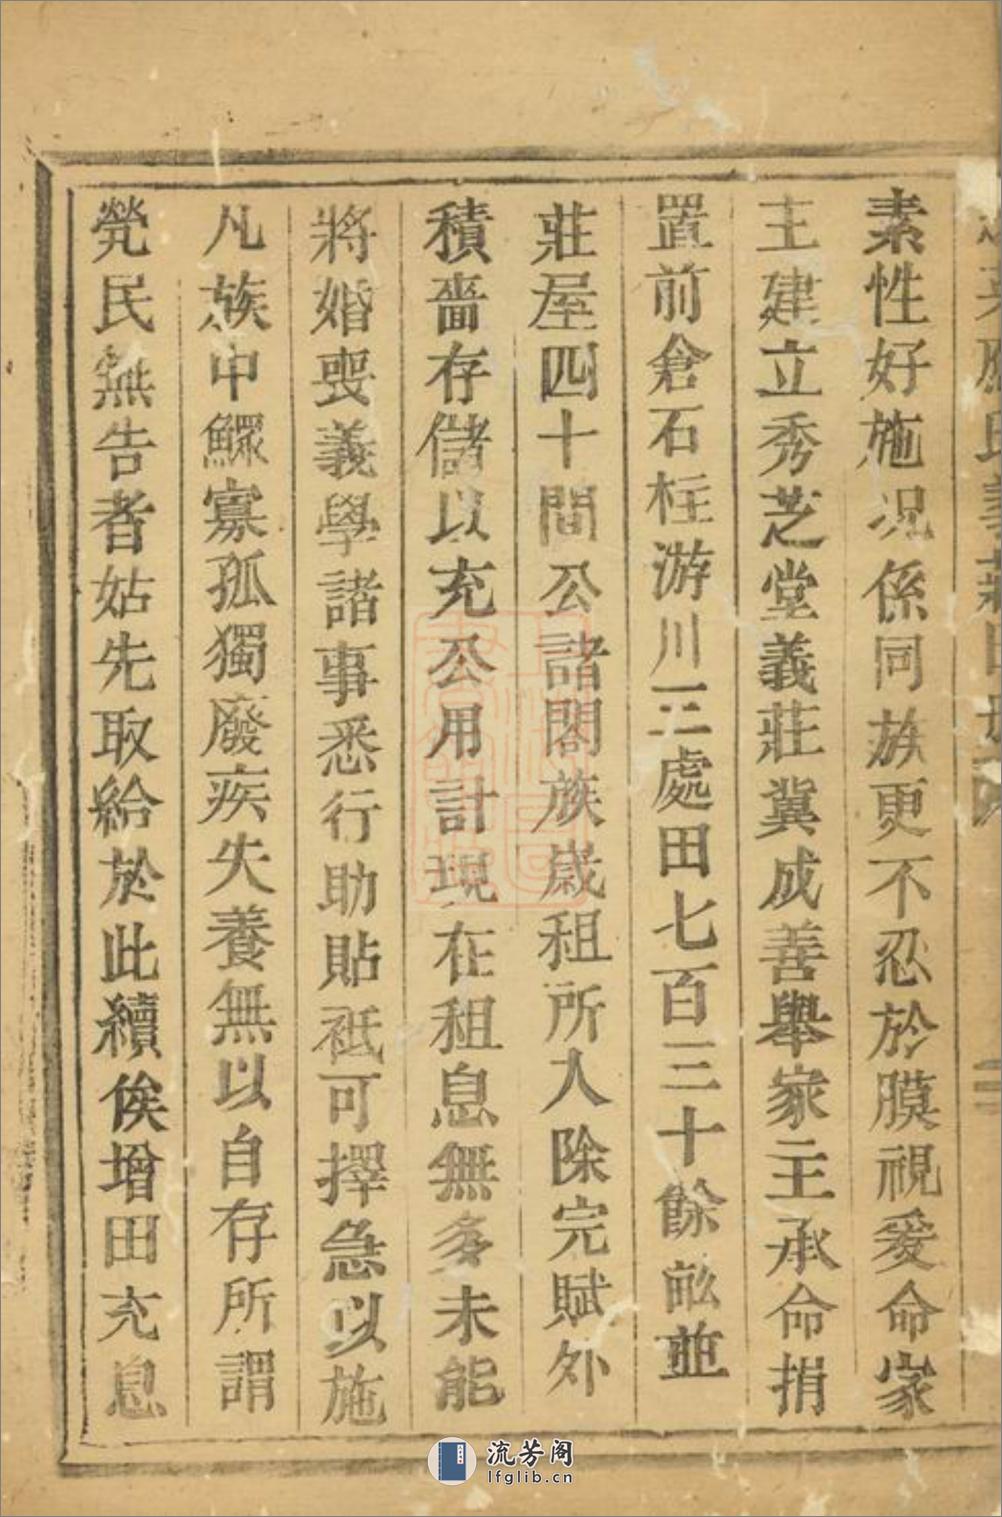 素性好施况係同族更不忍於膜視爰命家
主建立秀芝堂義莊冀成善舉家主承命捐
置前倉石柱游川三處田七百三十餘畝並
莊屋四十間公諸閤族歲租所入除完賦外
積嗇存儲以充公用計現在租息無多未能
將婚喪義學諸事悉行助貼祗可擇急以施
凡族中鰥寡孤獨廢疾失養無以自存所謂
煢民無告者姑先取給於此續俟增田充息
流芳阁
lfglib.cn